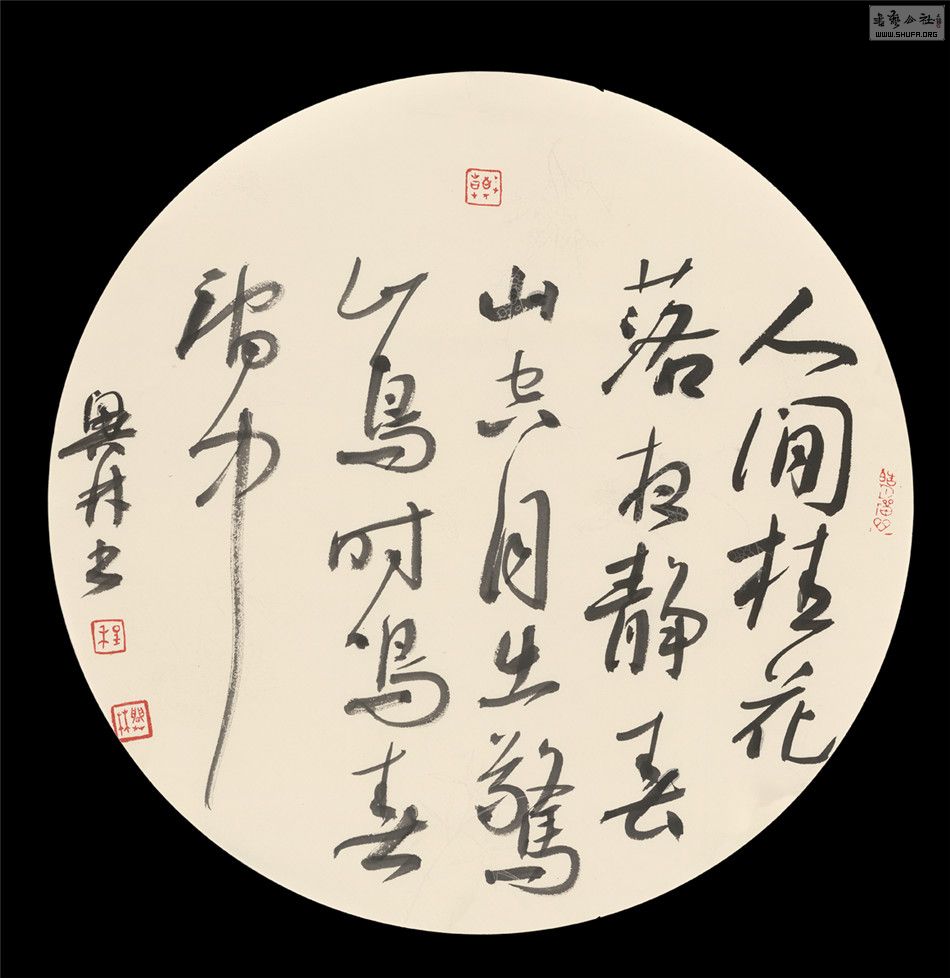 人间桂花
落夜静春
山空月出驚
山鸟时鸣春
涧中
林书
程
WWW.SHUFA.ORG